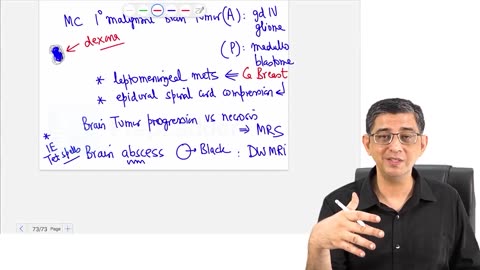 MC 1° malignant Brain Tumor (A): gd IV
glioma
← dexona
(P): medullo
blastoma
* leptomeningeal mets ⇐ Ca Breast
* epidural spinal cord compression ↲
Brain Tumor progression vs necrosis
⇒ MRS
*
IE
Tet spells Brain abscess ○→ Black : DWMRI
73/73 Page